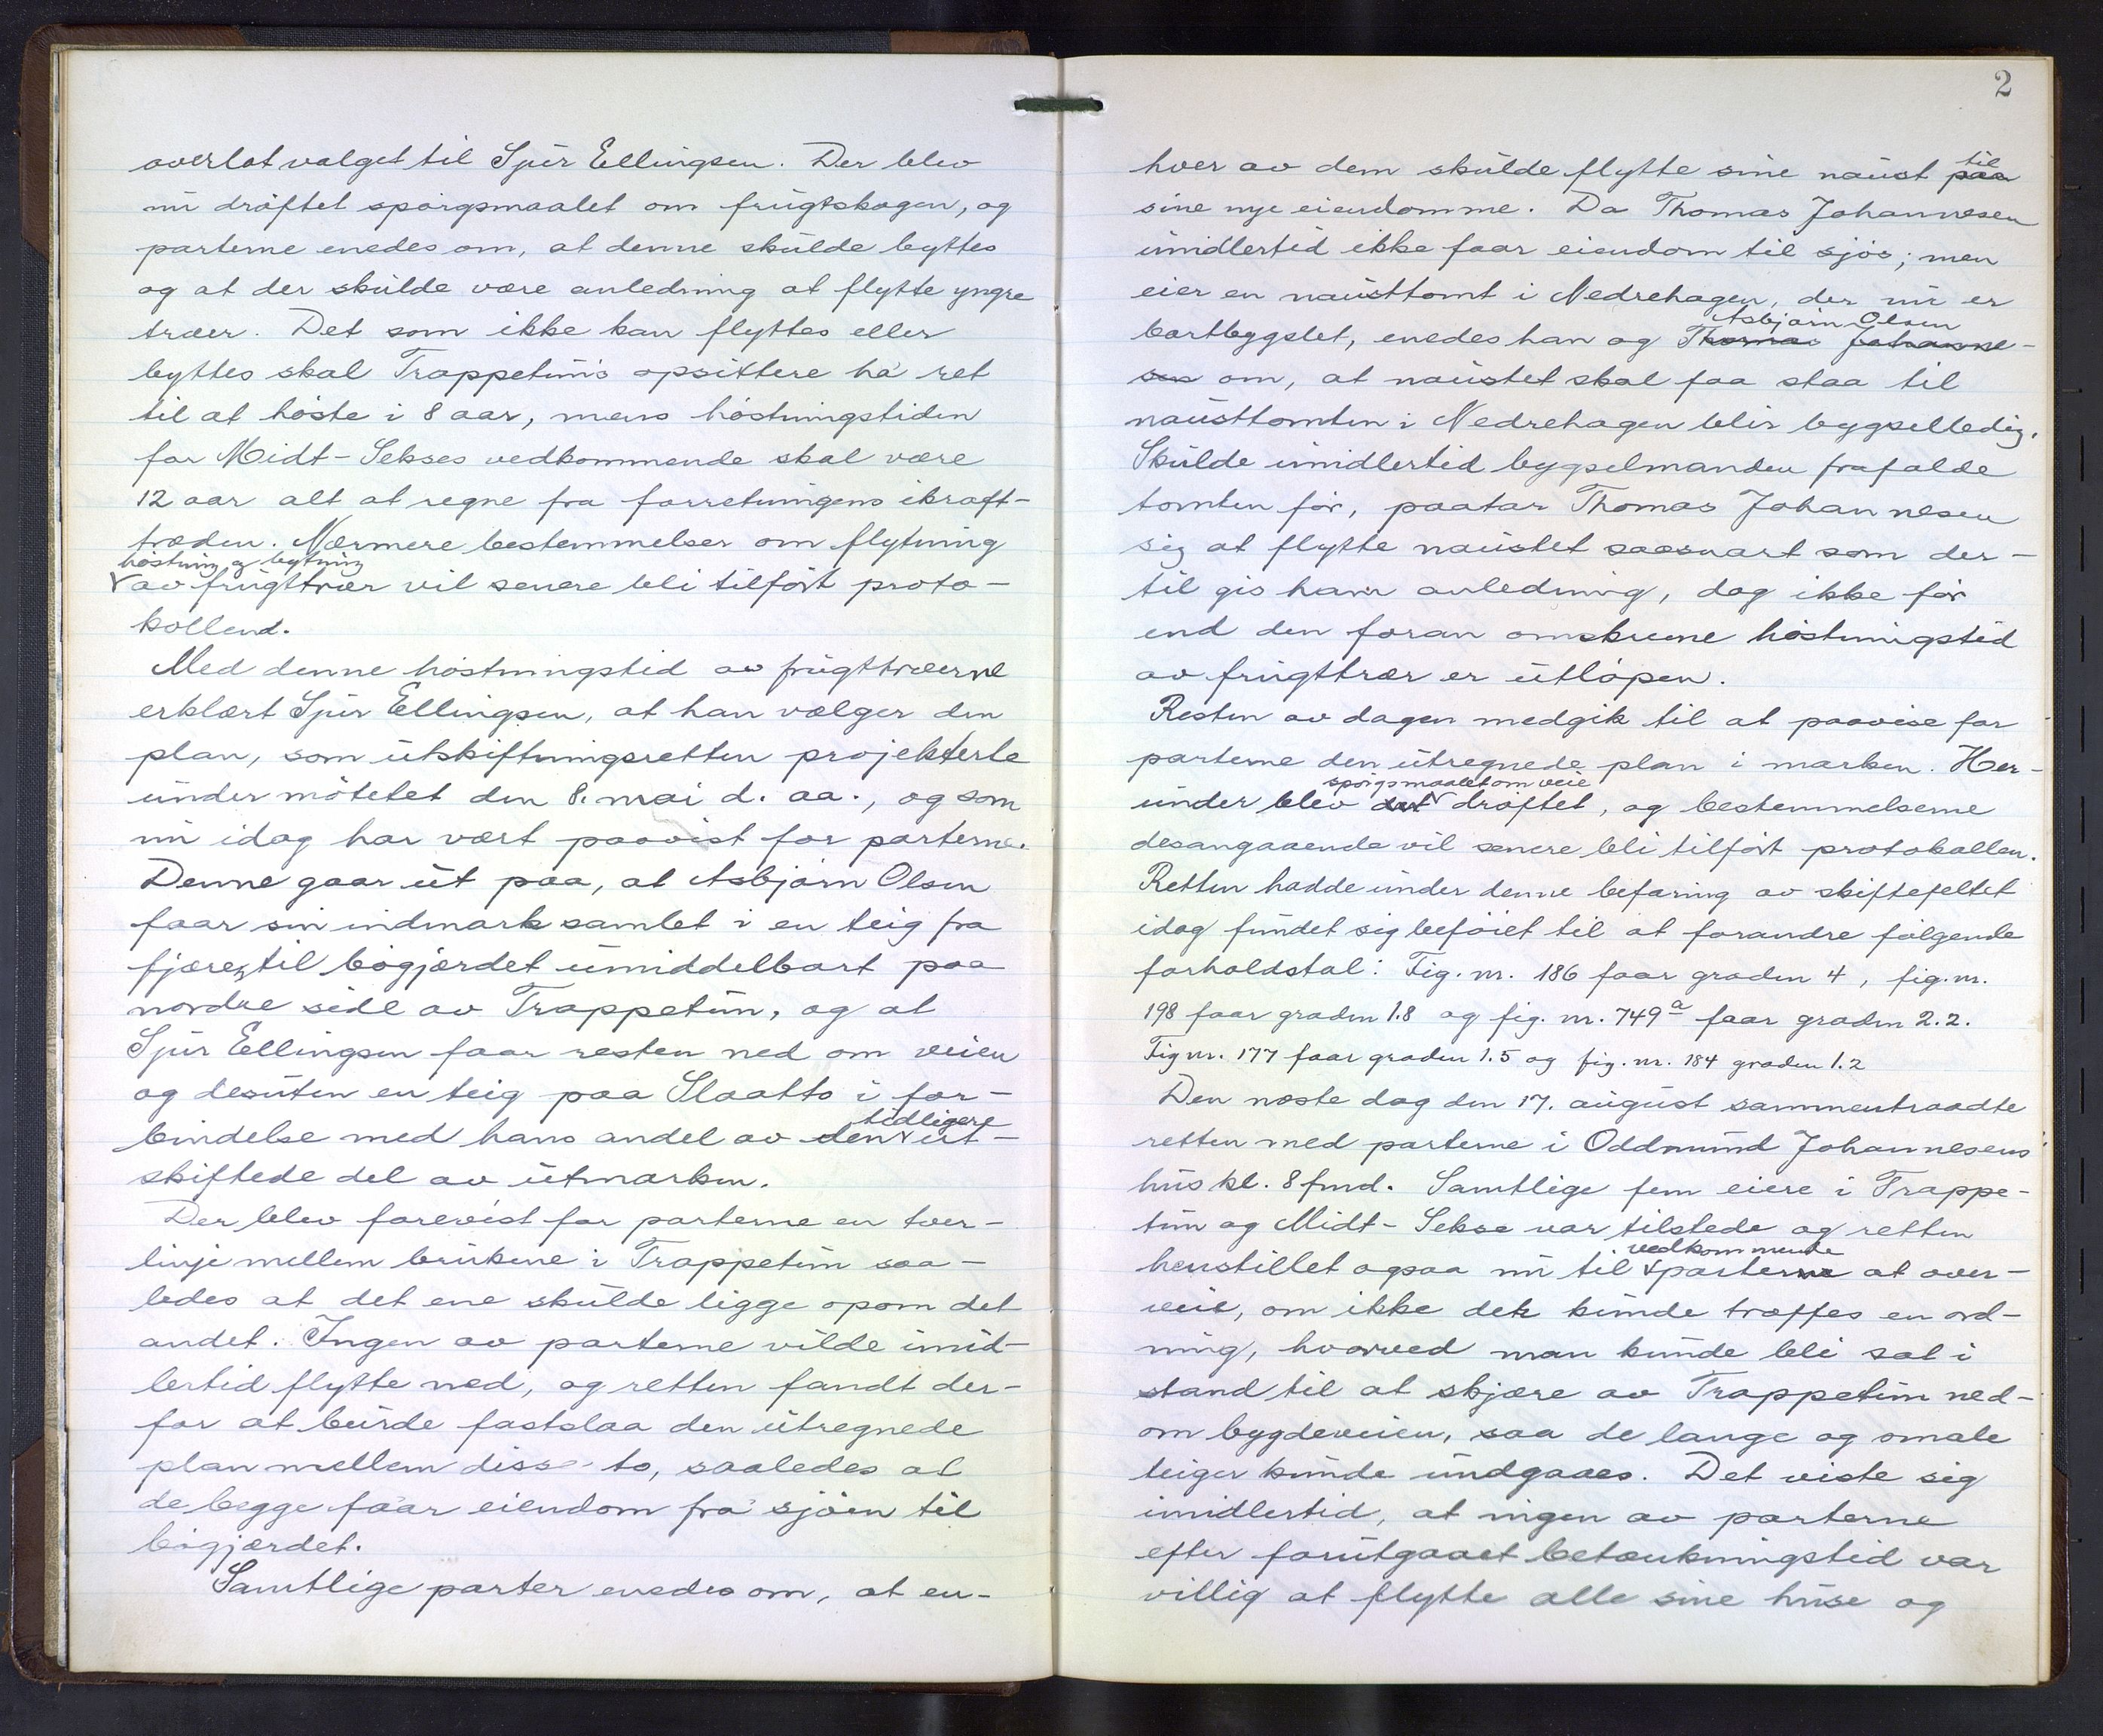 overlot valget til Sjur Ellingsen. Der blev
nu drøftet spørgsmaalet om frugtskogen, og
parterne enedes om, at denne skulde byttes
og at der skulde være anledning at flytte yngre
trær. Det som ikke kan flyttes eller
byttes skal Trappetuns opsittere ha ret
til at høste i 8 aar, mens høstningstiden
for Midt-Sekses vedkommende skal være
12 aar alt at regne fra forretningens ikraft-
træden. Nærmere bestemmelser om flytning
høstning og bytning
av frugttrær vil senere bli tilført proto-
kollend.
Med denne høstningstid av frugttrærne
erklært Sjur Ellingsen, at han vælger den
plan, som utskiftningsretten projekterte
under møtetet den 8. mai d. aa., og som
nu idag har vært paavist for parterne.
Denne gaar ut paa, at Asbjørn Olsen
faar sin indmark samlet i en teig fra
fjæren til bøgjærdet umiddelbart paa
nordre side av Trappetun, og at
Sjur Ellingsen faar resten ned om veien
og desuten en teig paa Slaatto i for-
tidligere
bindelse med hans andel av den ut-
skiftede del av utmarken.
Der blev forevist for parterne en tver-
linje mellem brukene i Trappetun saa-
ledes at det ene skulde ligge opom det
andet. Ingen av parterne vilde imid-
lertid flytte ned, og retten fandt der-
for at burde fastslaa den utregnede
plan mellem disse to, saaledes at
de begge faar eiendom fra sjøen til
bøgjærdet.
Samtlige parter enedes om, at en-
2
til
hver av dem skulde flytte sine naust paa
sine nye eiendomme. Da Thomas Johannesen
imidlertid ikke faar eiendom til sjøs; men
eier en nausttomt i Nedrehagen, der nu er
Asbjørn Olsen
bortbygslet, enedes han og Thomas Johanne-
sen om, at naustet skal faa staa til
nausttomten i Nedrehagen blir bygselledig.
Skulde imidlertid bygselmanden frafalde
tomten før, paatar Thomas Johannesen
sig at flytte naustet saasnart som der-
til gis ham anledning, dog ikke før
end den foran omskrevne høstningstid
av frugttrær er utløpen.
Resten av dagen medgik til at paavise for
parterne den utregnede plan i marken. Her-
spørgsmaalet om veie
under blev det drøftet, og bestemmelserne
desangaaende vil senere bli tilført protokollen.
Retten hadde under denne befaring av skiftefeltet
idag fundet sig beføiet til at forandre følgende
forholdstal: Fig. nr. 186 faar graden 4, fig. nr.
198 faar graden 1.8 og fig. nr. 749 a faar graden 2.2.
Fig nr. 177 faar graden 1.5 og fig. nr. 184 graden 1.2
Den næste dag den 17. august sammentraadte
retten med parterne i Oddmund Johannesens
hus kl. 8 fmd. Samtlige fem eiere i Trappe-
tun og Midt-Sekse var tilstede og retten
vedkommende
henstillet ogsaa nu til parterne at over-
veie, om ikke det kunde træffes en ord-
ning, hvorved man kunde bli sat i
stand til at skjære av Trappetun ned-
om bygdeveien, saa de lange og smale
teiger kunde undgaaes. Det viste sig
imidlertid, at ingen av parterne
efter forutgaaet betænkningstid var
villig at flytte alle sine huse og